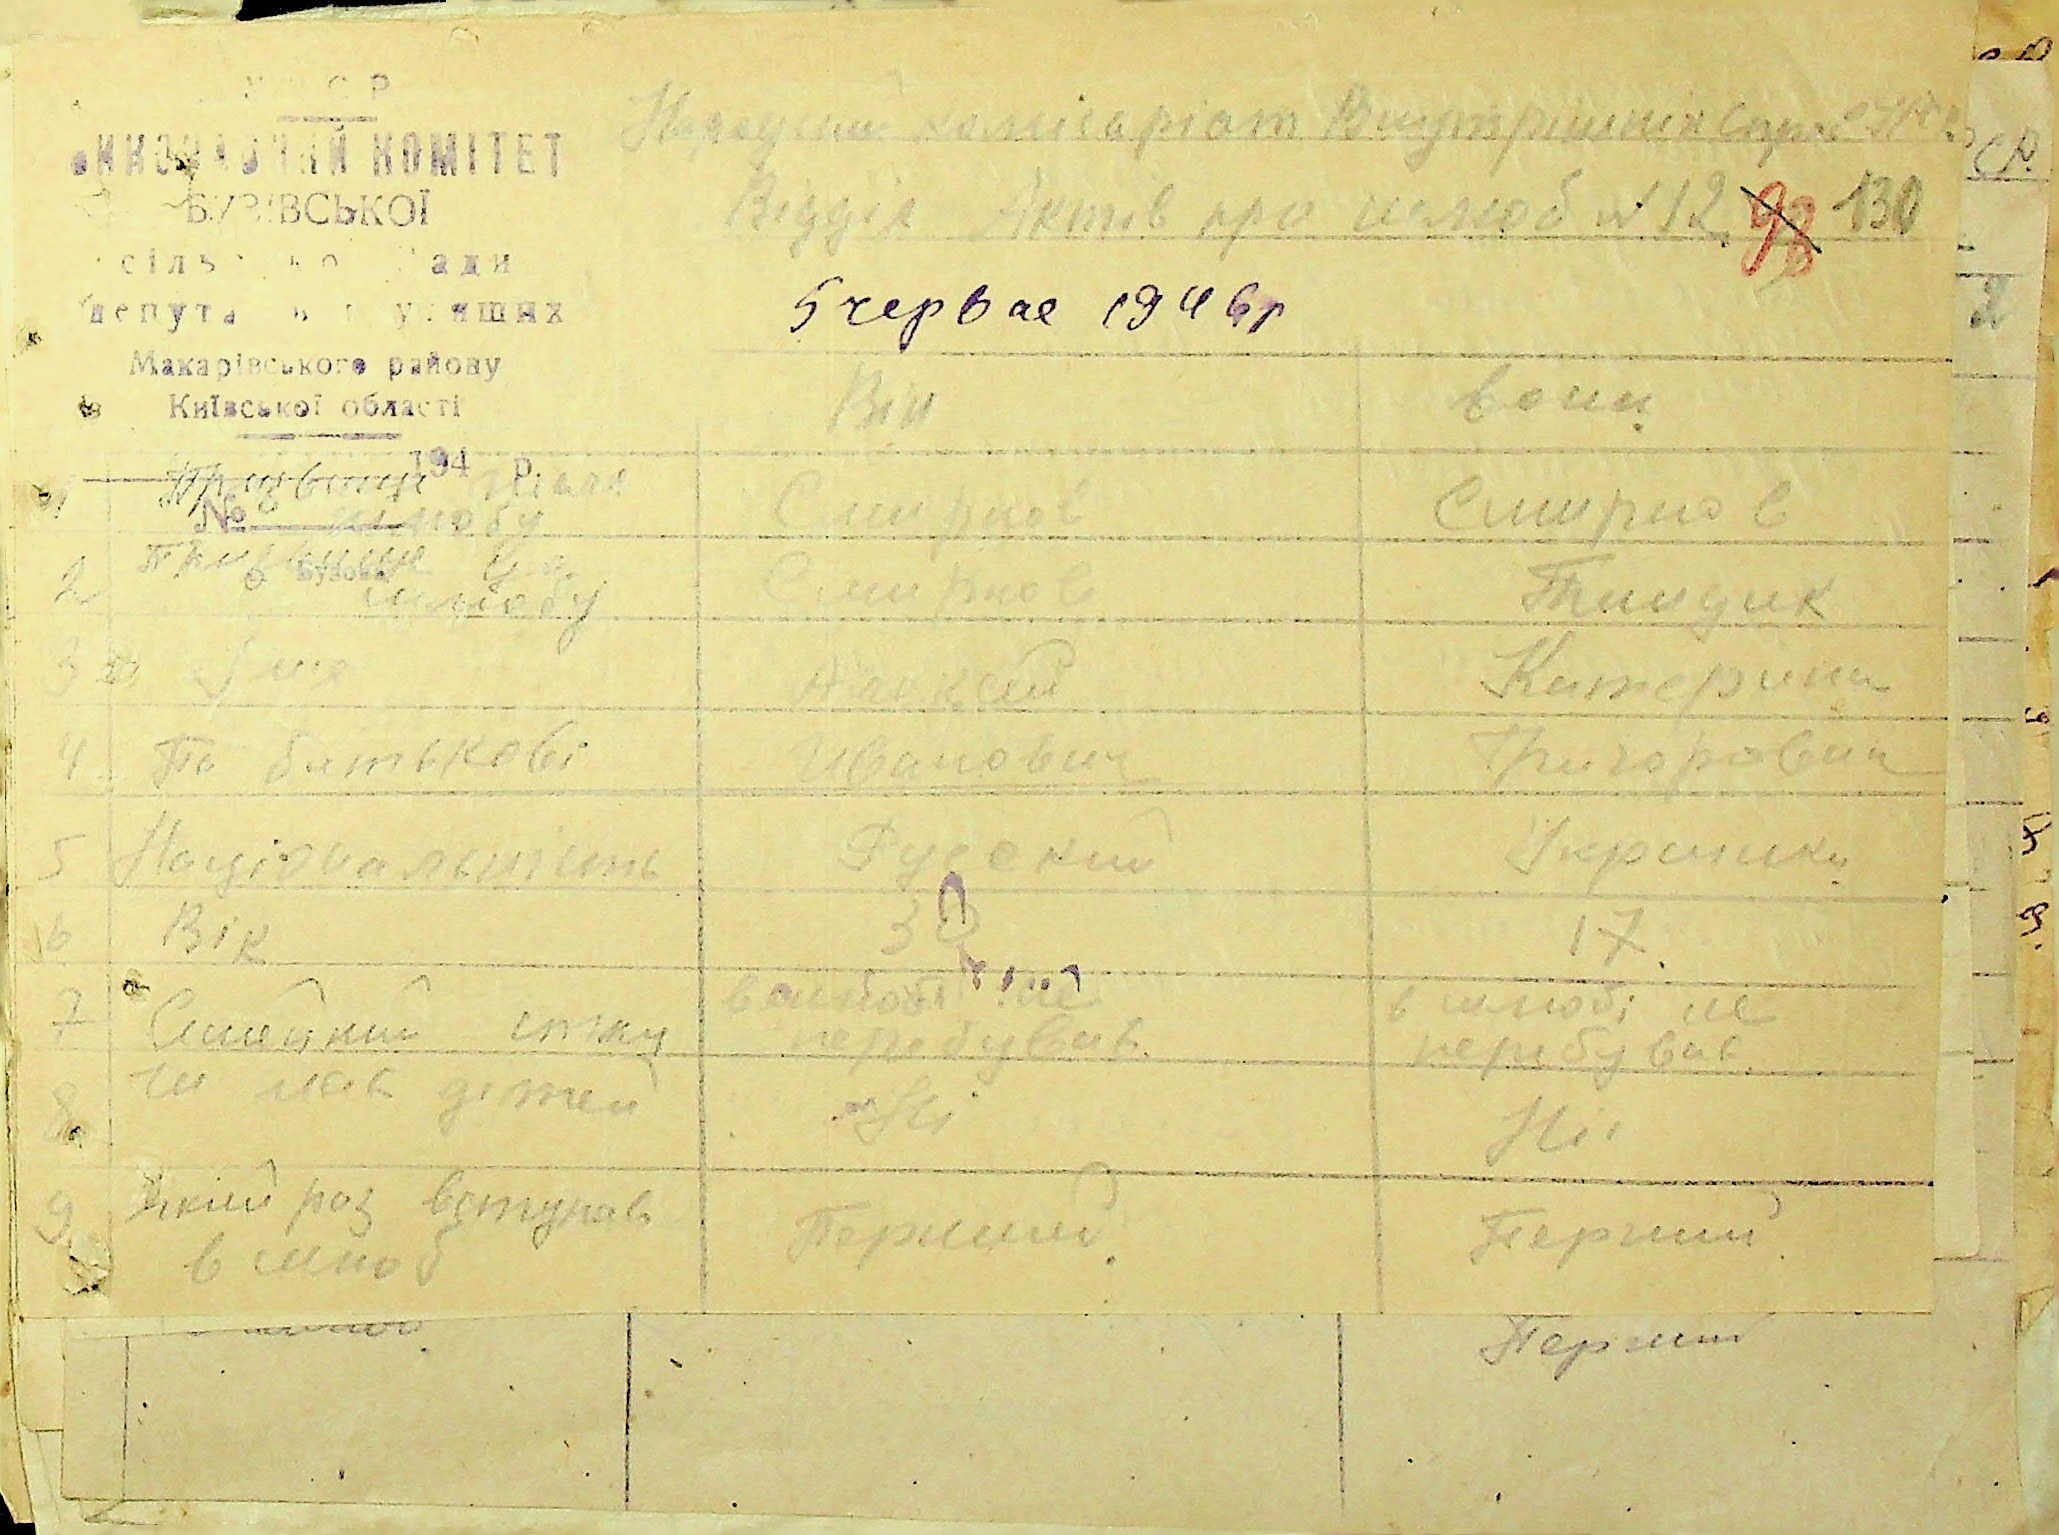 УРСР
ВИКОНАВЧИЙ КОМІТЕТ
БУЗІВСЬКОЇ
сільської ради
депутатів трудящих
Макарівського району
Київської області
194 р.
№
с. Бузова
Народний комісаріат Внутрішніх Справ УРСР
Відділ Актів про шлюб №12 98 130
5 червня 1946 р
Він Вона
1 Прізвище після шлюбу Смирнов Смирнов
2 Прізвище до шлюбу Смирнов
3 Імя Алексей Катерина
4 По батькові Иванович Григоровна
5 Національність Русский Українка
6 Вік 17.
7 Сімейний стан в шлюбі не перебував в шлюбі не перебував
8 чи мав дітей Ні Ні
9 Який раз вступав в шлюб Перший Перший
Перший